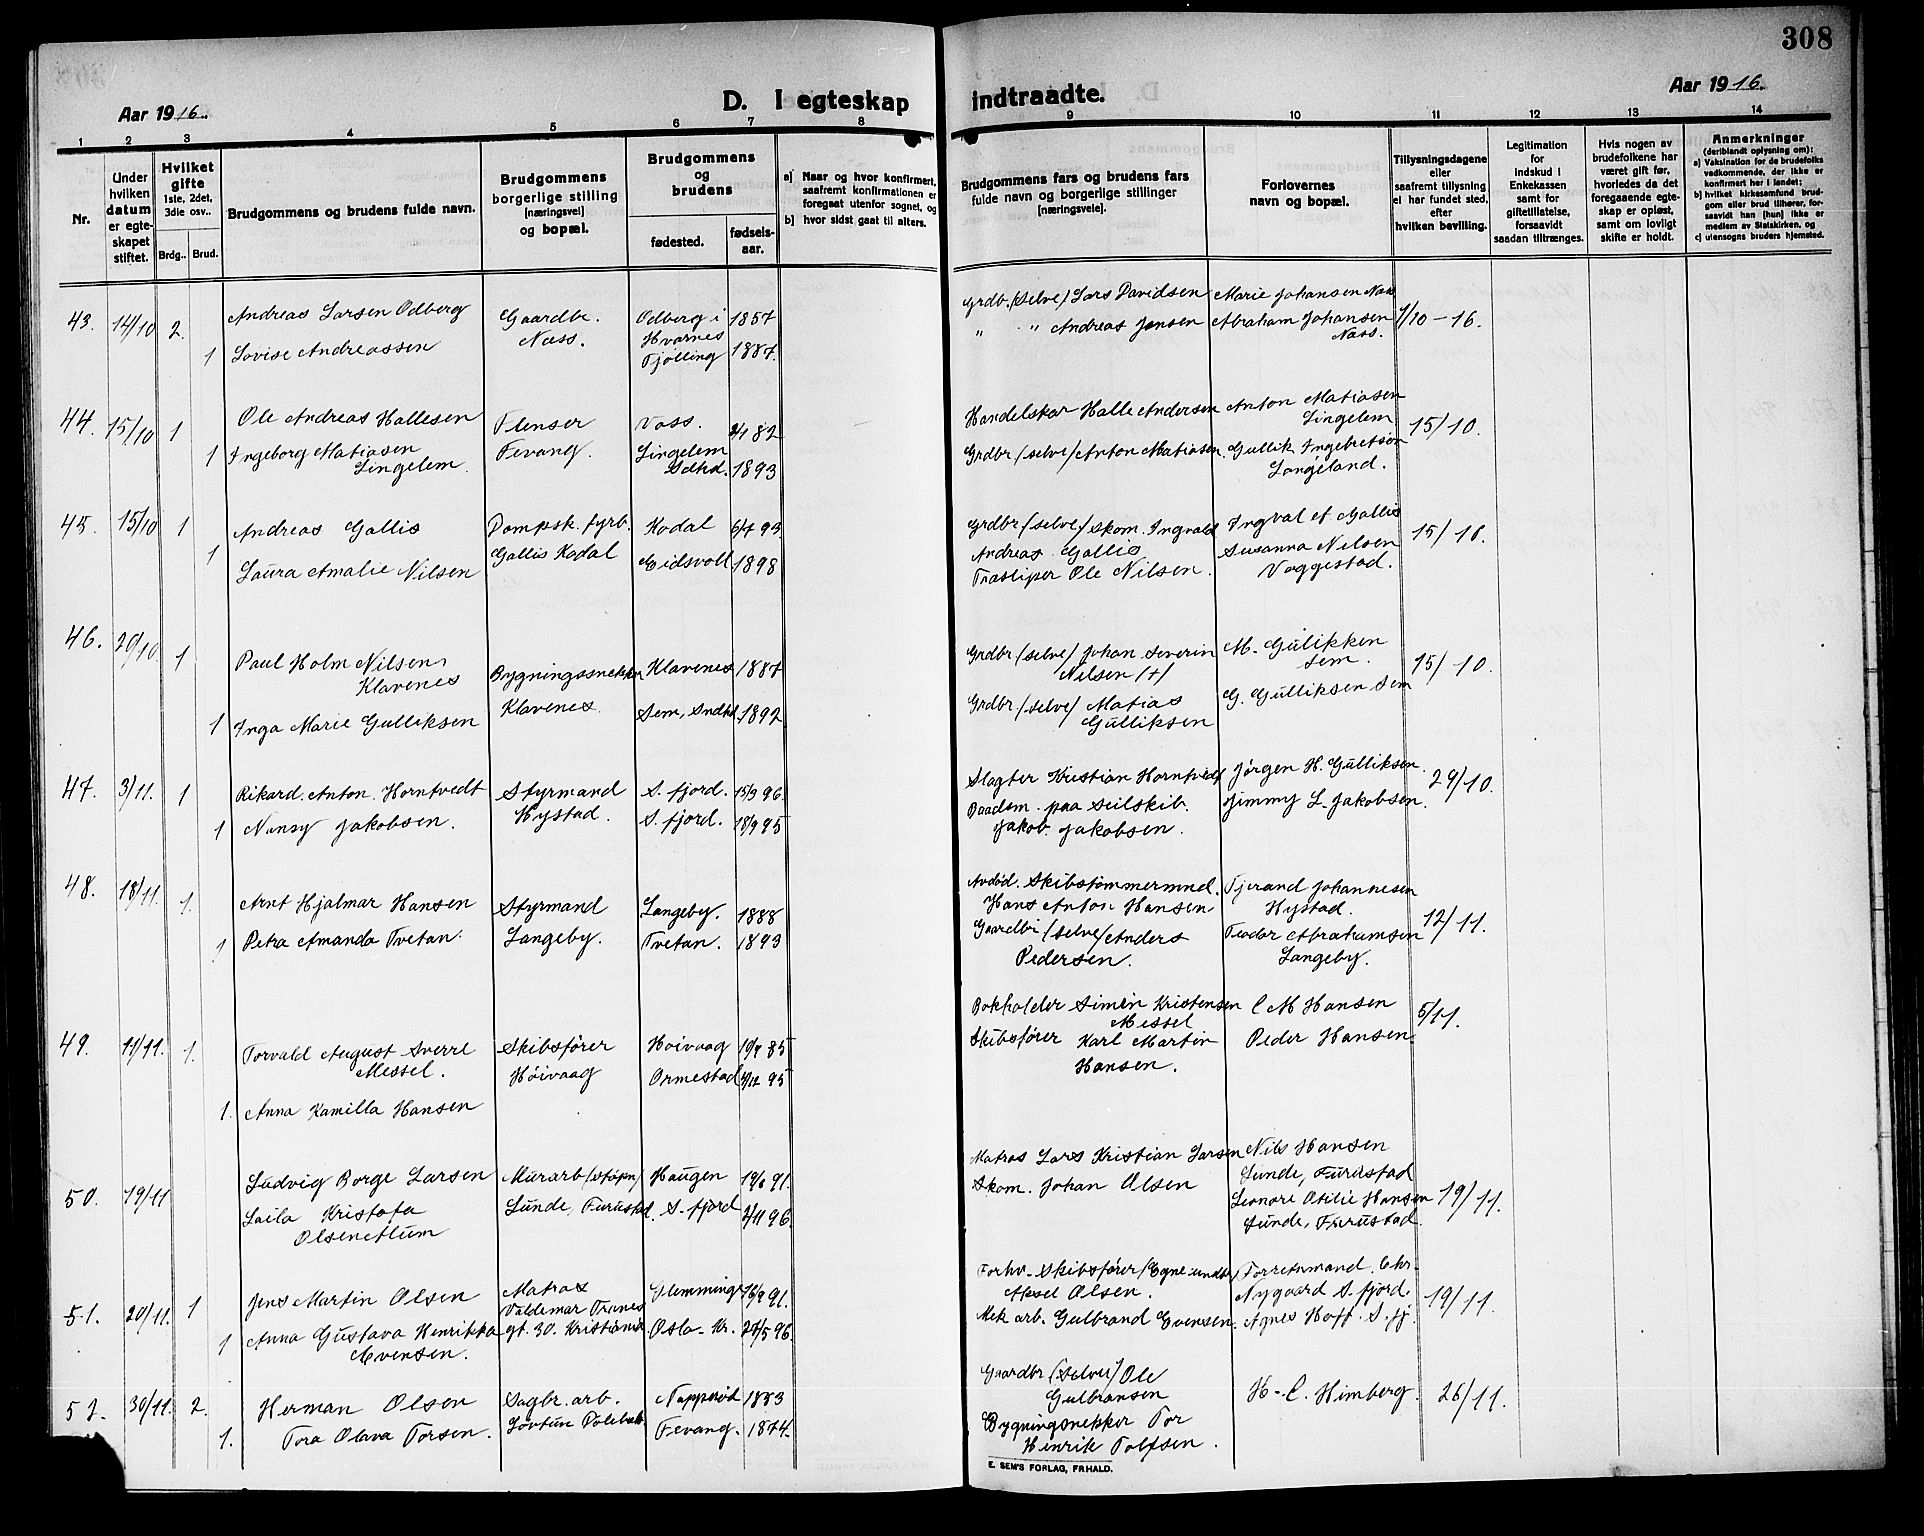 308
Aar 1916.
D. I egteskap indtraadte.
Aar 1916.
1 2 3 4 5 6 7 8 9 10 11 12 13 14
Nr.
Under hvilken datum er egte-skapet stiftet.
Hvilket gifte 1ste, 2det, 3die osv..
Brdg.. Brud.
Brudgommens og brudens fulde navn.
Brudgommens borgerlige stilling [næringsvei] og bopæl.
Brudgommens og brudens
fødested. fødsels-aar.
a) Naar og hvor konfirmert, saafremt konfirmationen er foregaat utenfor sognet, og
b) hvor sidst gaat til alters.
Brudgommens fars og brudens fars fulde navn og borgerlige stillinger [næringsvei].
Forlovernes navn og bopæl.
Tillysningsdagene eller saafremt tillysning ei har fundet sted, efter hvilken bevilling.
Legitimation for indskud i Enkekassen samt for giftetillatelse, forsaavidt saadan tiltrænges.
Hvis nogen av brudefolkene har været gift før, hvorledes da det foregaaende egte-skap er opløst, samt om lovligt skifte er holdt.
Anmerkninger (deriblandt oplysning om):
a) Vaksination for de brudefolks vedkommende, der ikke er konfirmert her i landet;
b) hvilket kirkesamfund brud-gom eller brud tilhører, for-saavidt han [hun] ikke er medlem av Statskirken, og
c) utensogns bruders hjemsted.
43. 14/10 2. Andreas Larsen Odberg Gaardbr. Odberg i 1857 Grdb. (selve) Lars Davidsen Marie Johansen Næss
Næss. Hvarnes " " Andreas Jensen Abraham Johansen /10-16.
1 Lovise Andreassen Tjølling 1887. Næss.
44. 15/10 1 Ole Andreas Hallesen Flenser Voss. 82 Handelskar Halle Andersen Anton Matiasen
Lingelem 15/10.
1 Ingeborg Matiasen Fevang. Lingelem Grdbr (selve) Anton Matiasen. Gullik Ingebretsen
Lingelem. Sdhd. 1893 Langeland.
45. 15/10 1 Andreas Gallis Dampsk. fyrb. Kodal 93 Grdbr (selve) skom. Ingvald Ingval et Gallis
1 Gallis Kodal Andreas Gallis Susanna Nilsen 15/10.
Laura Amalie Nilsen Eidsvoll 1898 Træsliper Ole Nilsen. Vaggestad.
46. 29/10. 1 Paul Holm Nilsen Bygningssnekker Klavenes 1887 Grdbr (selve) Johan Severin M. Gulikken
Klavenes Nilsen (+) Sem. 15/10.
1 Inga Marie Gulliksen Klavenes. Sem, Sndhd. 1892 Grdbr (selve) Matias G. Gulliksen Sem
Gulliksen
47. 3/11. 1 Rikard. Anton. Horntvedt Styrmand S. fjord. 15/3 96. Slagter Kristian Horntvedt Jørgen H. Gulliksen. 29/10.
1 Nansy Jakobsen. Hystad. S. fjord. 18/9 95 Baadsm. paa Seilskib. Jimmy L. Jakobsen.
Jakob. Jakobsen.
48. 18/11. 1. Arnt Hjalmar Hansen Styrmand Langeby. 1888 Avdød. Skibstømmermnd. Tjerand Johannesen
Hans Anton Hansen Hystad. 12/11.
1 Petra Amanda Tvetan. Langeby. Tvetan. 1893 Gaardbr (selve) Anders Teodor Abrahamsen
Pedersen. Langeby.
49. 11/11. 1. Torvald August Sverre Skibsfører Høivaag 19/4 85 Bokholder Simen Kristensen C M Hansen 5/11.
Messel. Høivaag Messel
Ormestad 4/12 95 Skibsfører Karl Martin Peder Hansen
1. Anna Kamilla Hansen Hansen.
50. 19/11 Ludvig Borge Larsen Murarb (støpn) Haugen 91. Matros Lars Kristian Larsen Nils Hansen
Lunde, Furustad. Skom. Johan Olsen Lunde, Furustad
Laila Kristofa S. fjord 96 Leonore Otilie Hansen 19/11.
Olsen Lunde, Furustad.
51. 20/11. 1 Jens Martin Olsen Matros Glemminge 91. Forhv. Skibsfører (Egne midler) Forretsmand. Chr.
Valdemar Thranes Aksel Olsen. Nygaard S. fjord. 19/11.
1 Anna Gustava Henrikka gt. 30. Kristiania Oslo-Kr. 96. Mek arb. Gulbrand Evensen. Agnes Hoff. S. fj.
Evensen.
52. 30/11. 2. Herman Olsen Sagbr. arb. 1883 Gaardbr (selve) Ole
Gulbransen H-C. Himberg. 26/11.
1. Tora Olava Torsen. Fevang. 1874. Bygningsnekker Tor
Henrik Tolfsen.
E. SEM'S FORLAG, FR.HALD.